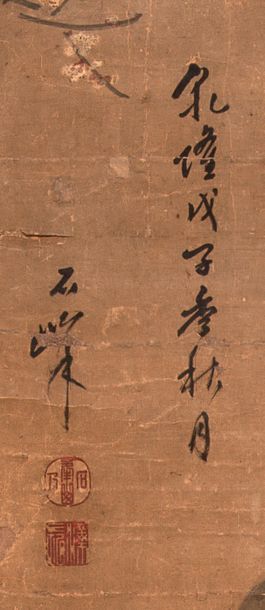 乾隆戊子季秋月
石峰